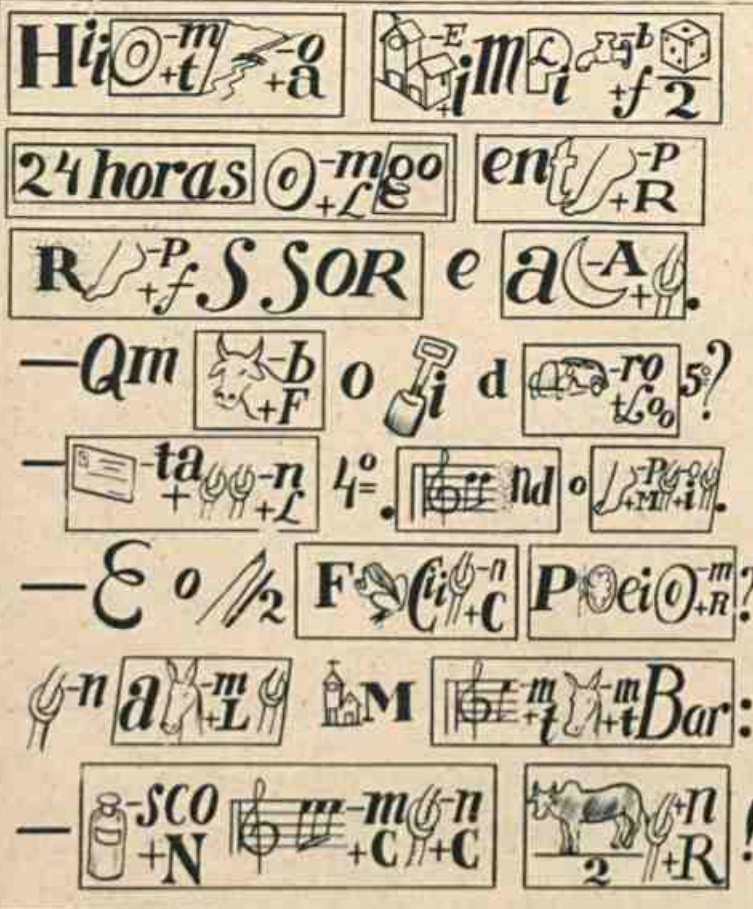 Hii -m +t -o +a -E +i m P L i -b +f 2
24 horas -m +L go ent -P +R
R -P +f S SOR e a -A + .
—Qm -b +F o i d -ro +Loo 5º?
— -ta + -n +L 4º. nd o -P +M -o +i .
—E o 2 F Cii -n +C P ei -m +R ?
-n a -m +L M -m +t -m +t Bar:
— -sco +N -m +C -n +C 2 +n +R !